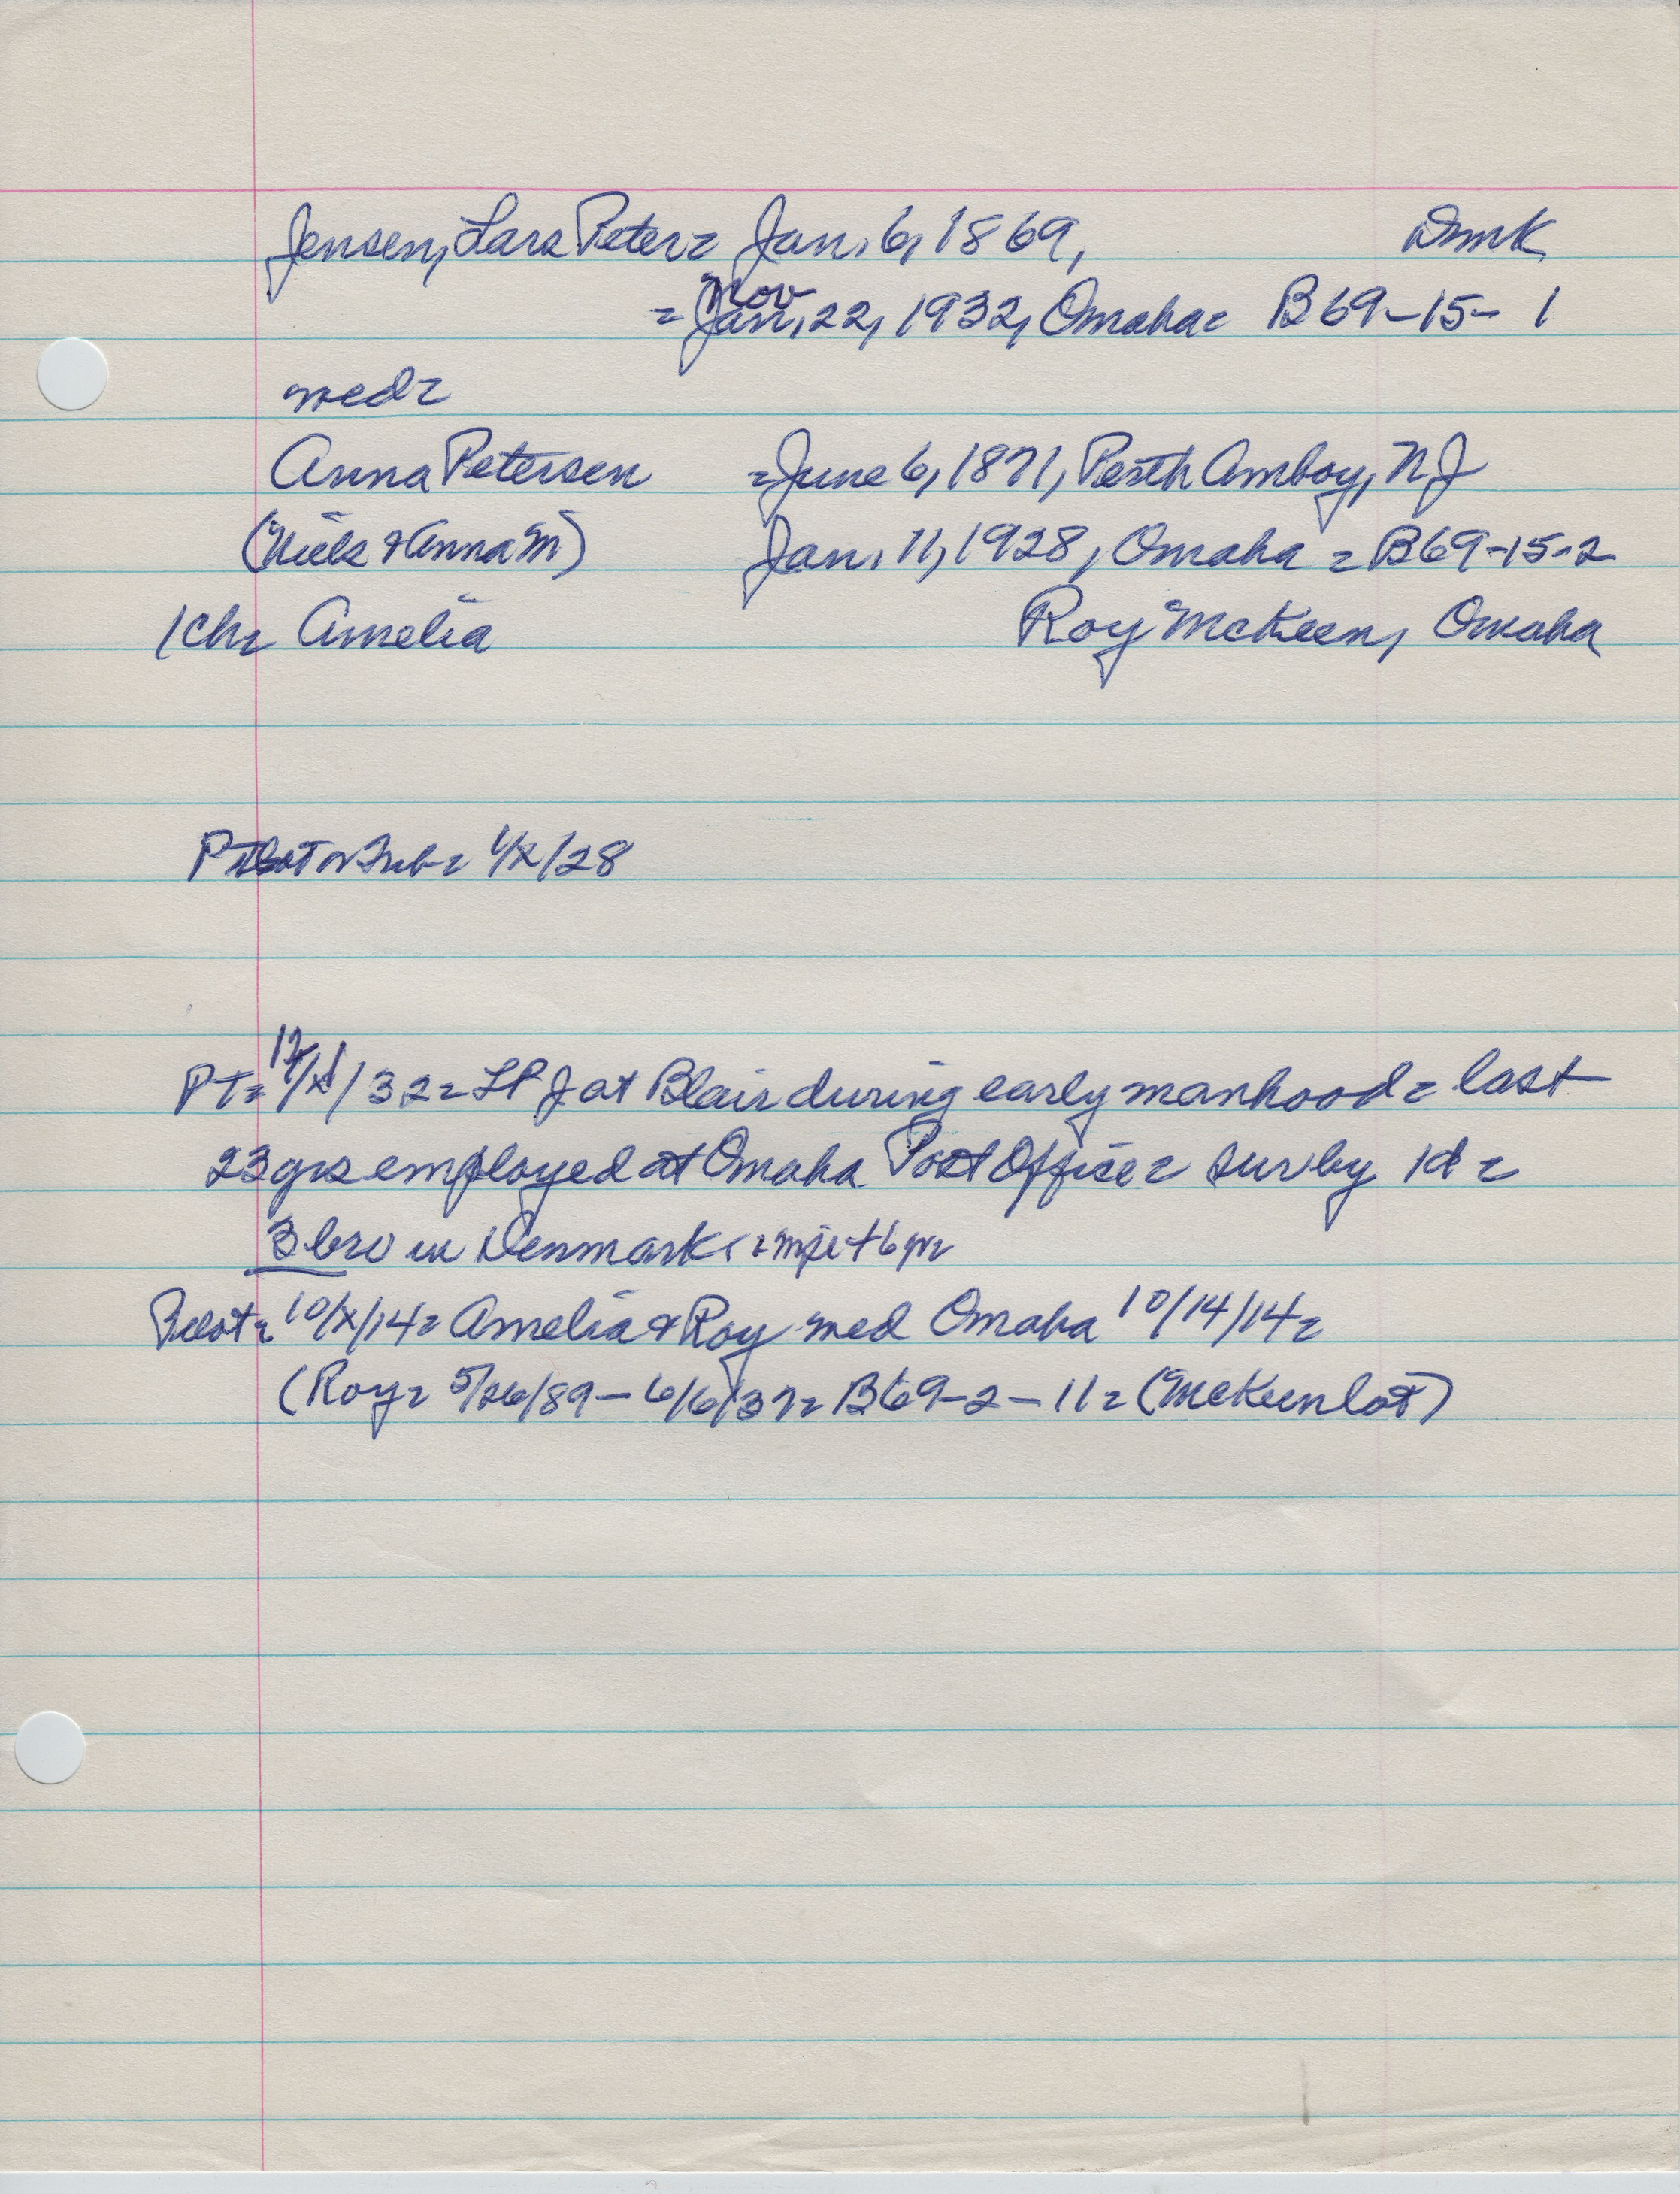 Jensen, Lars Peter= Jan. 6, 1869, Dmk
= Jan. Nov 22, 1932, Omaha= B69-15-1
med=
Anna Petersen =June 6, 1871, Perth Amboy, NJ
(Niels & Anna M) Jan. 11, 1928, Omaha = B69-15-2
1ch= Amelia Roy McKeen, Omaha
1/X/28
PT= 12/X/32= LPJ at Blair during early manhood= last
23yrs employed at Omaha Post Office= sur by 1d=
3 bro in Denmark
Pilot= 10/X/14= Amelia & Roy med Omaha 10/14/14=
(Roy= 5/26/89-6/6/37= B69-2-11= (McKeen lot)